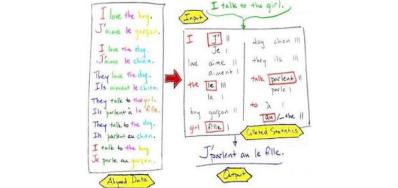 I love the boy.
J'aime le garçon.
I love the dog.
J'aime le chien.
They love the dog.
Ils aiment le chien.
They talk to the girl.
Ils parlent à la fille.
They talk to the dog.
Ils parlent au chien.
I talk to the boy
Je parle au garçon.
Aligned Data
I talk to the girl.
Input
I J' III
Je I
love aime III
aiment I
the le III
la I
boy garçon II
girl fille I
dog chien III
they ils III
talk parlent II
parle I
to à I
au /_the II
Collected Statistics
J'parlent au le fille.
Output